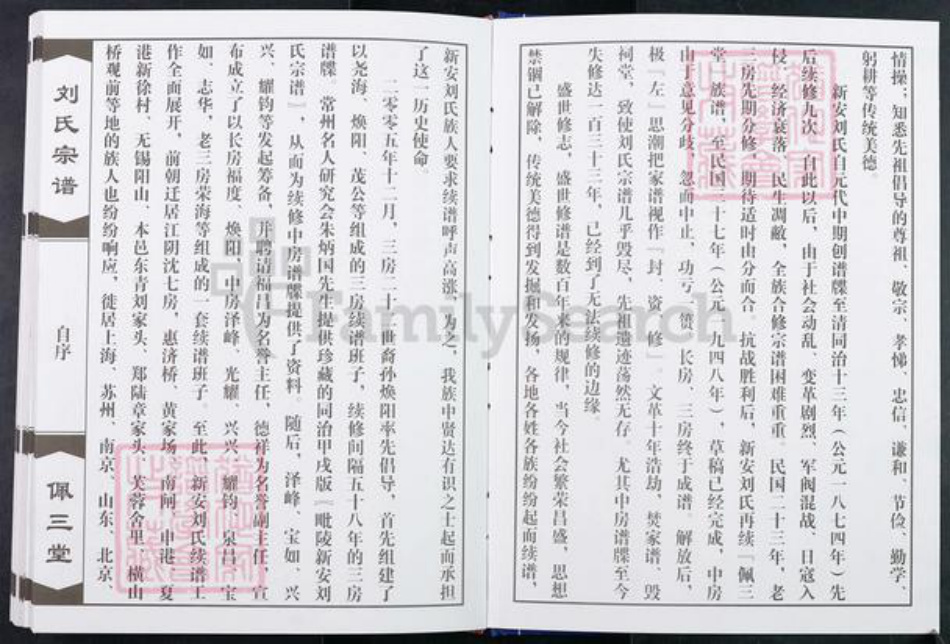 情操；知悉先祖倡导的尊祖、敬宗、孝悌、忠信、谦和、节俭、勤学、
躬耕等传统美德。
新安刘氏自元代中期创谱牒至清同治十三年（公元一八七四年）先
后续修九次，自此以后，由于社会动乱，变革剧烈、军阀混战、日寇入
侵，经济衰落，民生凋敝，全族合修宗谱困难重重。民国二十三年，老
三房先期分修，期待适时由分而合。抗战胜利后，新安刘氏再续「佩三
堂」族谱，至民国三十七年（公元一九四八年），草稿已经完成，中房
由于意见分歧，忽而中止，功亏一篑，长房、三房终于成谱。解放后，
极「左」思潮把家谱视作「封、资、修」。文革十年浩劫，焚家谱、毁
祠堂，致使刘氏宗谱几乎毁尽，先祖遗迹荡然无存。尤其中房谱牒至今
失修达一百三十三年，已经到了无法续修的边缘。
盛世修志，盛世修谱是数百年来的规律，当今社会繁荣昌盛，思想
禁锢已解除，传统美德得到发掘和发扬，各地各姓各族纷纷起而续谱，
新安刘氏族人要求续谱呼声高涨，为之，我族中贤达有识之士起而承担
了这一历史使命。
二零零五年十二月，三房二十二世裔孙焕阳率先倡导，首先组建了
以尧海、焕阳、茂公等组成的三房续谱班子，续修间隔五十八年的三房
谱牒。常州名人研究会朱炳国先生提供珍藏的同治甲戌版《毗陵新安刘
氏宗谱》，从而为续修中房谱牒提供了资料。随后，泽峰、宝如、兴
兴、耀钧等发起筹备，并聘请福昌为名誉主任，德祥为名誉副主任，宣
布成立了以长房福度、焕阳，中房泽峰、光耀、兴兴、耀钧、泉昌、宝
如、志华，老三房荣海等组成的一套续谱班子。至此，新安刘氏续谱工
作全面展开，前朝迁居江阴沈七房，惠济桥、黄家场、南闸、申港、夏
港新徐村、无锡阳山、本邑东青刘家头、郑陆章家头、芙蓉舍里、横山
桥观前等地的族人也纷纷响应，徙居上海、苏州、南京、山东、北京、
刘氏宗谱
自序
佩三堂
FamilySearch